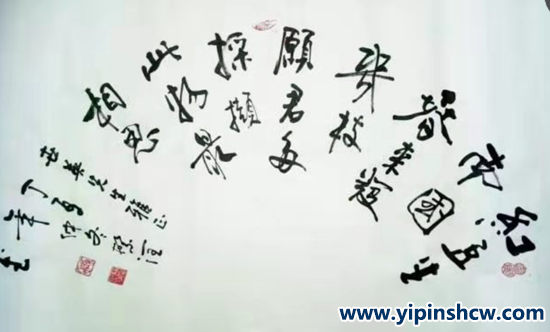 紅豆生
南國
春來發
幾枝
願君多
採擷
此物最
相思
世華先生雅正
丁酉
www.yipinshcw.com